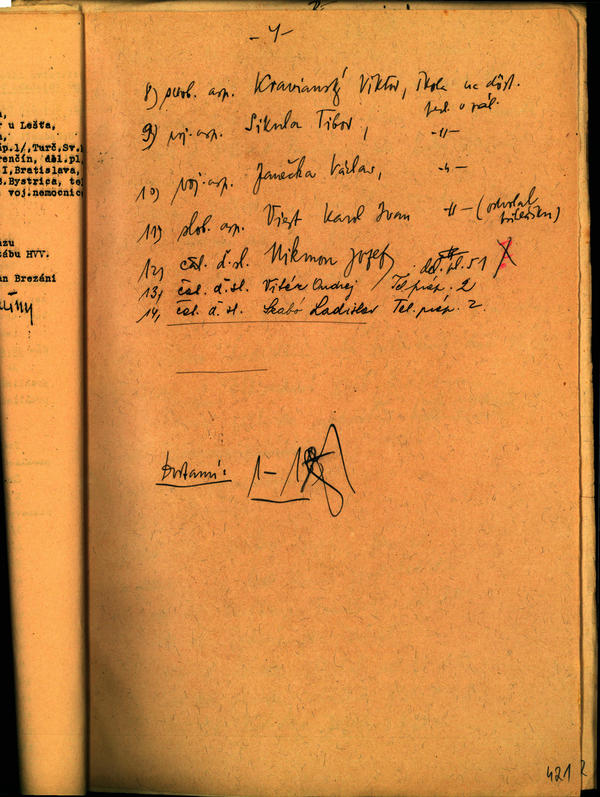 u Lešťa,
áp.1/,Turč.Sv.
renčín, děl.pl
I,Bratislava,
B.Bystrica, te
voj.nemocnic
zu
tábu HVV.
an Brezáni
- 4 -
8) slob. asp. Kraviansky Viktor, škola na dôst.
9) voj. asp. Sikula Tibor, -"-
10) voj. asp. Janečka Václav, -"-
11) slob. asp. Viest Karol Ivan -"- (odvolal
12, čat. ď. sl. Nikmon Jozef del. pl. 51
13, čat. ď. sl. Vitéz Ondrej Tel. práp. 2
14, čat. ď. sl. Szabó Ladislav Tel. práp. 2.
Dostanú: 1-1
421